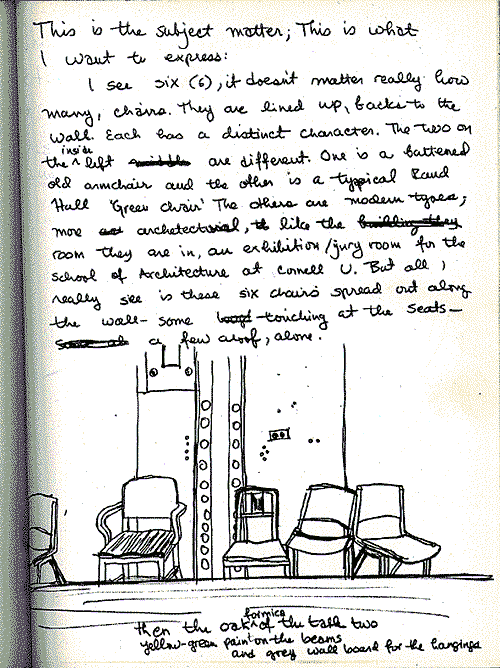 This is the subject matter; This is what
I want to express:
I see six (6), it doesn't matter really how
many, chairs. They are lined up, backs to the
wall. Each has a distinct character. The two on
the inside left middle are different. One is a battened
old armchair and the other is a typpical Rand
Hall 'Green chair' The others are modern types;
more architectural, like the building they
room they are in, an exhibition/jury room for the
school of Architecture at Cornell U. But all I
really see is these six chairs spread out along
the wall- some touching at the seats-
a few aroof, alone.
then the oak formica of the table two
yellow-green paint on the beams
and grey wall board for the hangings